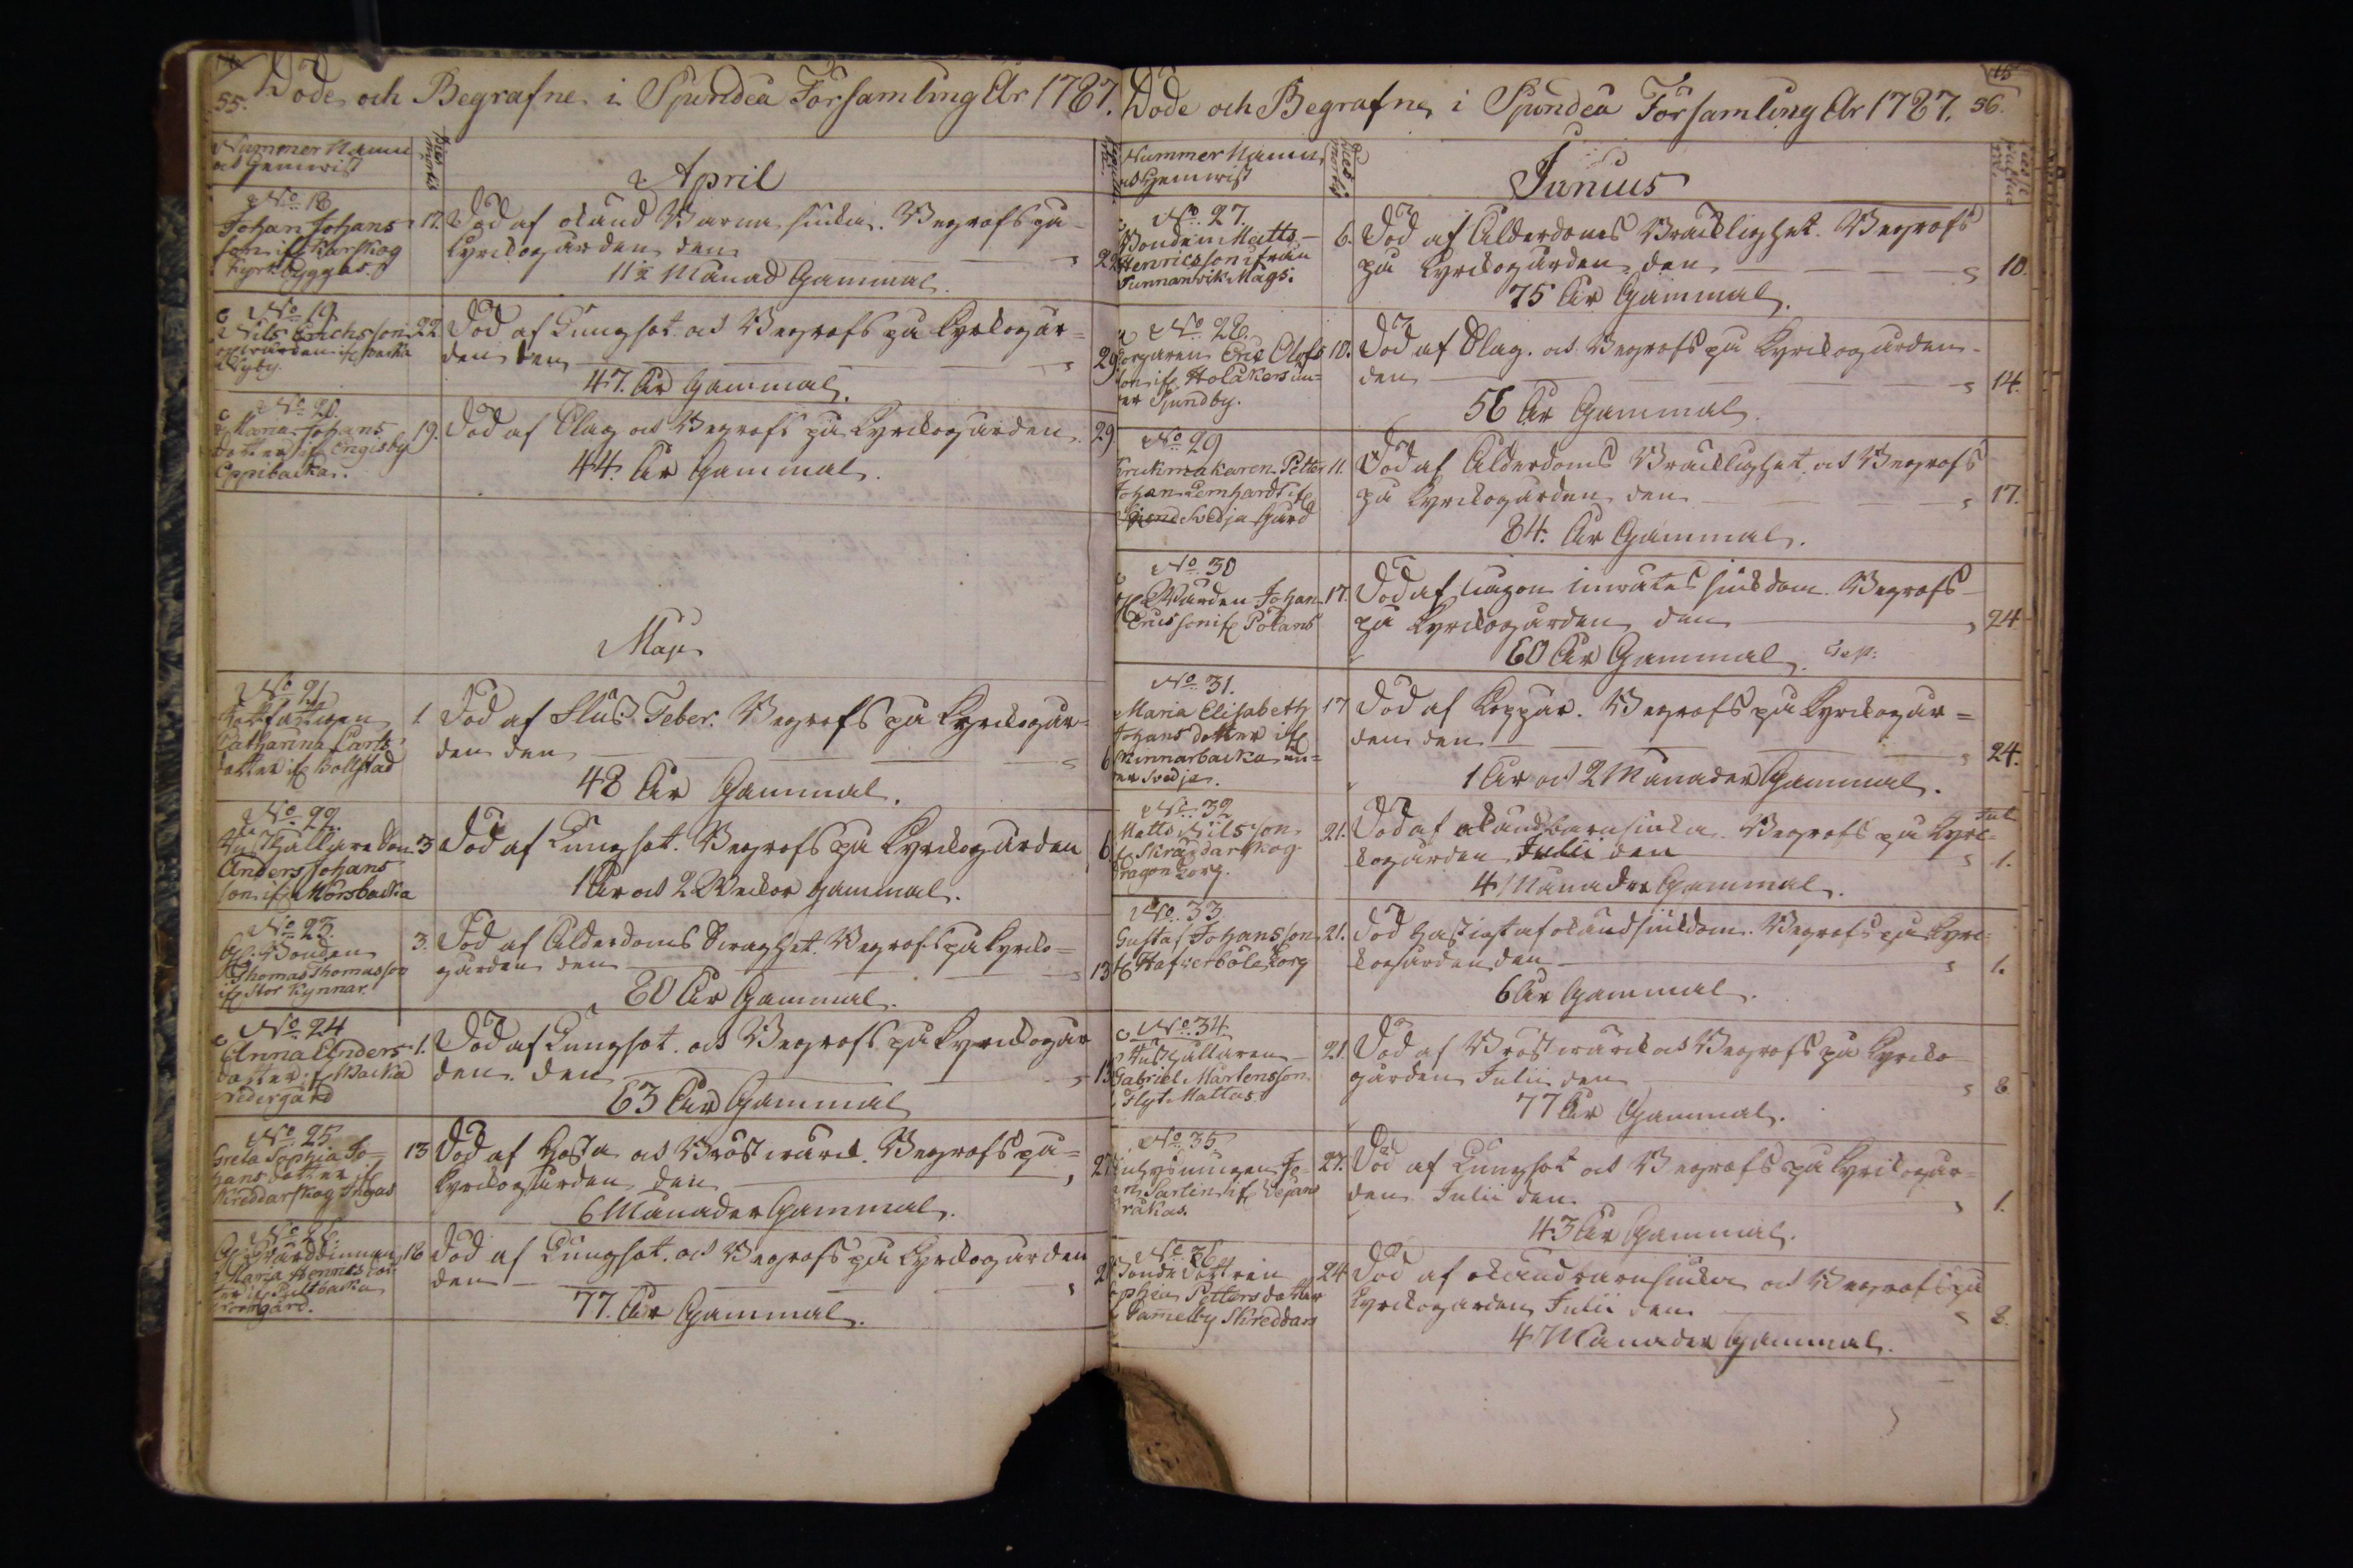 55.
Döde och Begrafne i Sjundeå Församling År 1787.
Nummer Namn
och Hemwist
Dies mortis
April
No 18
Johan Johans
son if Karskog
Kyrkbyggas.
17.
Död af okänd Barna siuka. Begrofs på
Kyrkogården den
11½ Månad Gammal.
No 19
Nils Erichsson
22
Död af Lungsot och Begrofs på Kyrkogår-
den den
29.
47. År Gammal.
No 20.
Maria Johans
dotter if Engisby
Eppibacka.
19.
Död af Slag och Begrofs på Kyrkogården
29
44. År Gammal.
Maji
No 21
Catharina Carls
dotter if Bollstad
1.
Död af Flus Feber. Begrofs på Kyrkogår-
den den
6
48 År Gammal.
No 22.
Anders Johans
son if Morsbacka
3
Död af Lungsot. Begrofs på Kyrkogården
6
1 År och 2 Weckor gammal.
No 23.
Bonden
Thomas Thomasson
if Stor Kynnar.
3.
Död af Ålderdoms Swaghet. Begrofs på Kyrko=
gården den
13
80 År Gammal.
No 24
Anna Anders
dotter if Backa
Nedergård
1.
Död af Lungsot och Begrofs på Kyrkogår
den den
13
63 År Gammal
No 25
Greta Sophia Jo=
hans dotter if
Skreddarskog Ingas
13
Död af Hosta och Bröstwärck. Begrofs på=
Kyrkogården den
6 Månader Gammal.
No 26.
Maria Henrics dot
ter if Pultbacka
Norrgård.
18
Död af Lungsot och Begrofs på Kyrkogården
den
77. År Gammal.
Döde och Begrafne i Sjundeå Församling År 1787.
56.
Nummer Namn
och Hemwist
Dies mortis
Junius
No 27.
Bonden Matts
Henricsson ifrån
Sunnanwik Mågs.
6.
Död af Ålderdoms Bräcklighet. Begrofs
på Kyrkogården den
10.
75 År Gammal.
No 28.
Eric Olofs
son if Holåkers un=
er Sjundby.
10.
Död af Slag. och Begrofs på Kyrkogården
den
14.
56 År Gammal
No 29
Petter
Johan Lemhardt if
Svidja Gård
11.
Död af Ålderdoms Bräcklighet och Begrofs
på Kyrkogården den
17.
84. År Gammal.
No 30
Johan
Ericsson if Polans
17.
Död af någon inwärtes siukdom. Begrofs
på Kyrkogården den
24
60 År Gammal.
No 31.
Maria Elisabeth
Johans dotter if
Kinnarbacka un=
er Svidja.
17
Död af Koppor. Begrofs på Kyrkogår=
den den
24.
1 År och 2 Månader Gammal.
No 32
Matts Nilsson
if Skräddarskog
Dragon Torp.
21.
Död af okänd barnsiuka. Begrofs på Kyrc=
Jul
kogården Julii den
1.
4 Månader Gammal.
No 33.
Gustaf Johansson
if Hafverböle Torp
21.
Död hastigt af okänd siukdom. Begrofs på Kyrc=
kogården den
1.
6 År Gammal.
No 34
Gabriel Mårtensson
Flyt Mattas
21.
Död af Bröstwärck och Begrofs på Kyrko
gården Julii den
8
77 År Gammal.
No 35
27.
Död af Lungsot och Begrofs på Kyrkogår=
den Julii den
1.
43 År Gammal.
No 36
Bonde Dottren
Sophia Petters dotter
Gamelby Skreddars
24
Död af okänd barnsiuka och Begrofs på
Kyrkogården Julii den
8.
4 Månader gammal.